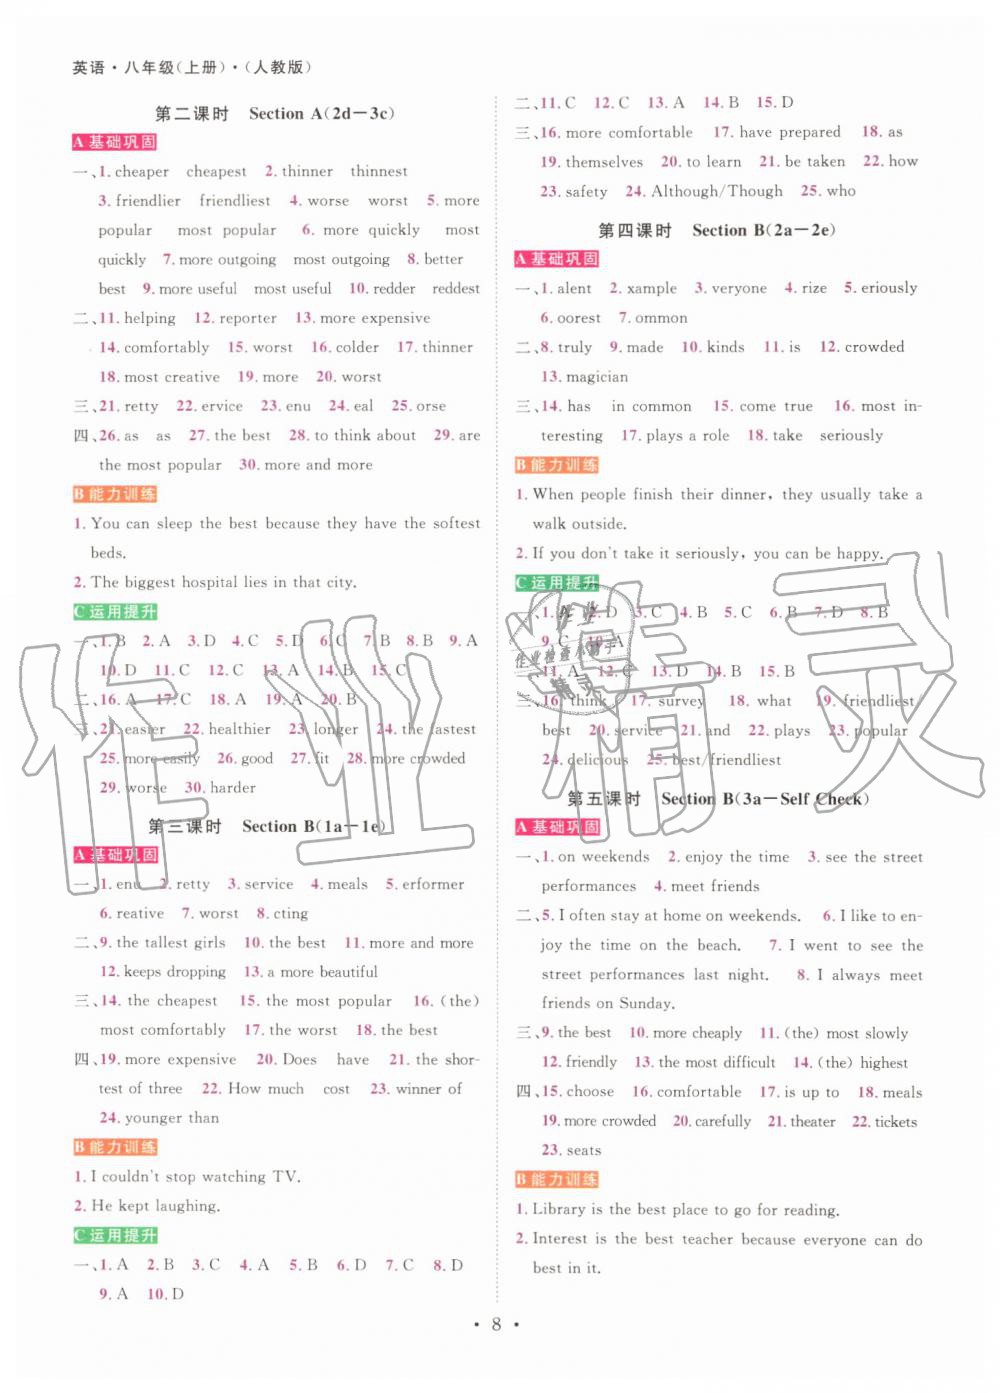 英语·八年级(上册)·(人教版)
第二课时 Section A(2d－3c)
A 基础巩固
一、1. cheaper cheapest 2. thinner thinnest
3. friendlier friendliest 4. worse worst 5. more
popular most popular 6. more quickly most
quickly 7. more outgoing most outgoing 8. better
best 9. more useful most useful 10. redder reddest
二、11. helping 12. reporter 13. more expensive
14. comfortably 15. worst 16. colder 17. thinner
18. most creative 19. more 20. worst
三、21. retty 22. ervice 23. enu 24. eal 25. orse
四、26. as as 27. the best 28. to think about 29. are
the most popular 30. more and more
B 能力训练
1. You can sleep the best because they have the softest
beds.
2. The biggest hospital lies in that city.
C 运用提升
一、1. B 2. A 3. D 4. C 5. D 6. C 7. B 8. B 9. A
10. D 11. C 12. C 13. A 14. B 15. C
二、16. A 17. C 18. A 19. A 20. B
三、21. easier 22. healthier 23. longer 24. the fastest
25. more easily 26. good 27. fit 28. more crowded
29. worse 30. harder
第三课时 Section B(1a－1e)
A 基础巩固
一、1. enu 2. retty 3. service 4. meals 5. erformer
6. reative 7. worst 8. cting
二、9. the tallest girls 10. the best 11. more and more
12. keeps dropping 13. a more beautiful
三、14. the cheapest 15. the most popular 16. (the)
most comfortably 17. the worst 18. the best
四、19. more expensive 20. Does have 21. the shor-
test of three 22. How much cost 23. winner of
24. younger than
B 能力训练
1. I couldn't stop watching TV.
2. He kept laughing.
C 运用提升
一、1. A 2. B 3. C 4. A 5. B 6. D 7. C 8. D
9. A 10. D
二、11. C 12. C 13. A 14. B 15. D
三、16. more comfortable 17. have prepared 18. as
19. themselves 20. to learn 21. be taken 22. how
23. safety 24. Although/Though 25. who
第四课时 Section B(2a－2e)
A 基础巩固
一、1. alent 2. xample 3. veryone 4. rize 5. eriously
6. oorest 7. ommon
二、8. truly 9. made 10. kinds 11. is 12. crowded
13. magician
三、14. has in common 15. come true 16. most in-
teresting 17. plays a role 18. take seriously
B 能力训练
1. When people finish their dinner, they usually take a
walk outside.
2. If you don't take it seriously, you can be happy.
C 运用提升
一、1. A 2. D 3. C 4. B 5. C 6. B 7. D 8. B
9. C 10. A
二、11. A 12. C 13. D 14. B 15. B
三、16. think 17. survey 18. what 19. friendliest/
best 20. service 21. and 22. plays 23. popular
24. delicious 25. best/friendliest
第五课时 Section B(3a－Self Check)
A 基础巩固
一、1. on weekends 2. enjoy the time 3. see the street
performances 4. meet friends
二、5. I often stay at home on weekends. 6. I like to en-
joy the time on the beach. 7. I went to see the
street performances last night. 8. I always meet
friends on Sunday.
三、9. the best 10. more cheaply 11. (the) most slowly
12. friendly 13. the most difficult 14. (the) highest
四、15. choose 16. comfortable 17. is up to 18. meals
19. more crowded 20. carefully 21. theater 22. tickets
23. seats
B 能力训练
1. Library is the best place to go for reading.
2. Interest is the best teacher because everyone can do
best in it.
· 8 ·
作业精灵
作业
作业检查小助手
精灵